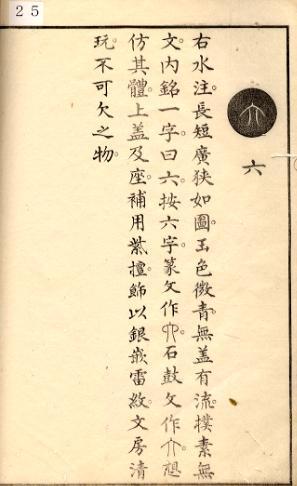 25
六
右水注。長短廣狹如圖。玉色微青。無盖有流。撲素無
文。内銘一字曰六。按六字。篆文作。石鼓文作。想
仿其體。上盖及座。補用紫檀。飾以銀嵌雷紋。文房清
玩不可欠之物。